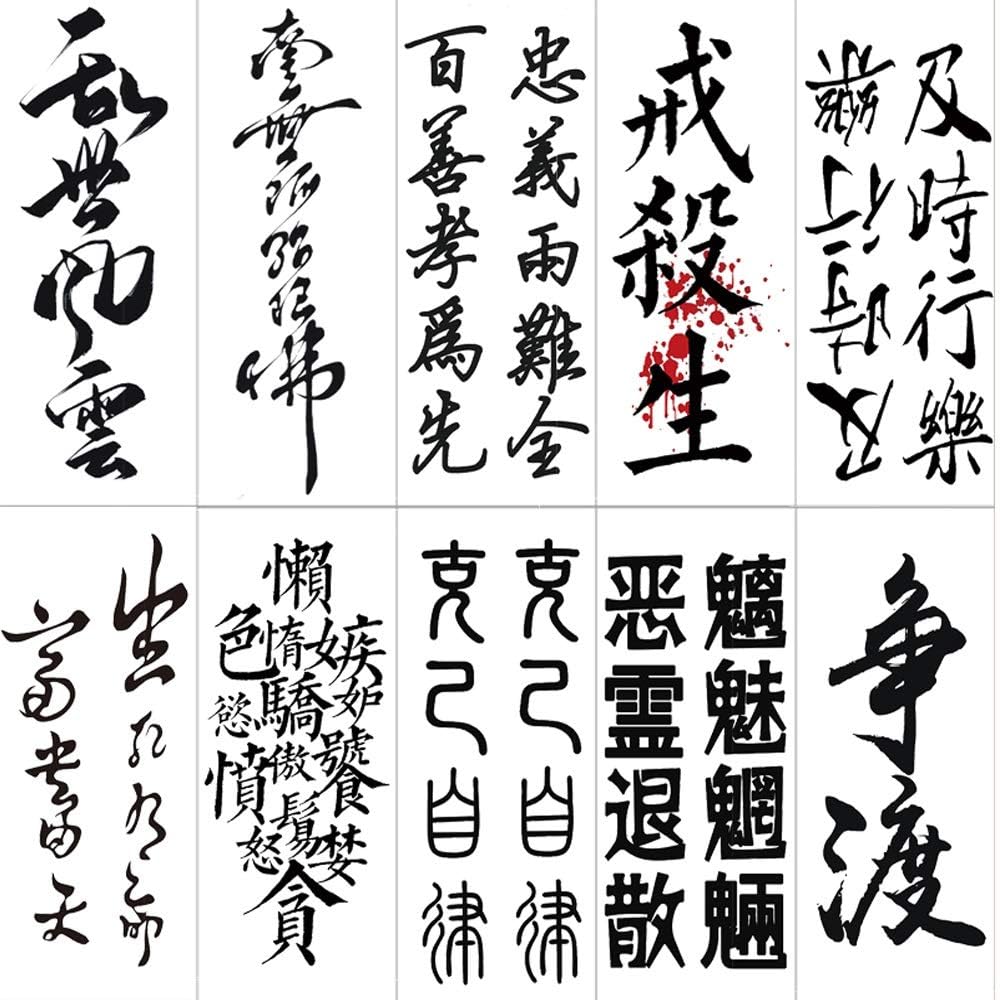 乱世风雲
南無阿弥陀佛
忠義兩難全
百善孝爲先
戒殺生
及時行樂
生死有命
懶惰
色慾
嫉妒
驕傲
饕
憤怒
貪婪
克己自律
克己自律
魑魅魍魎
恶霊退散
争渡